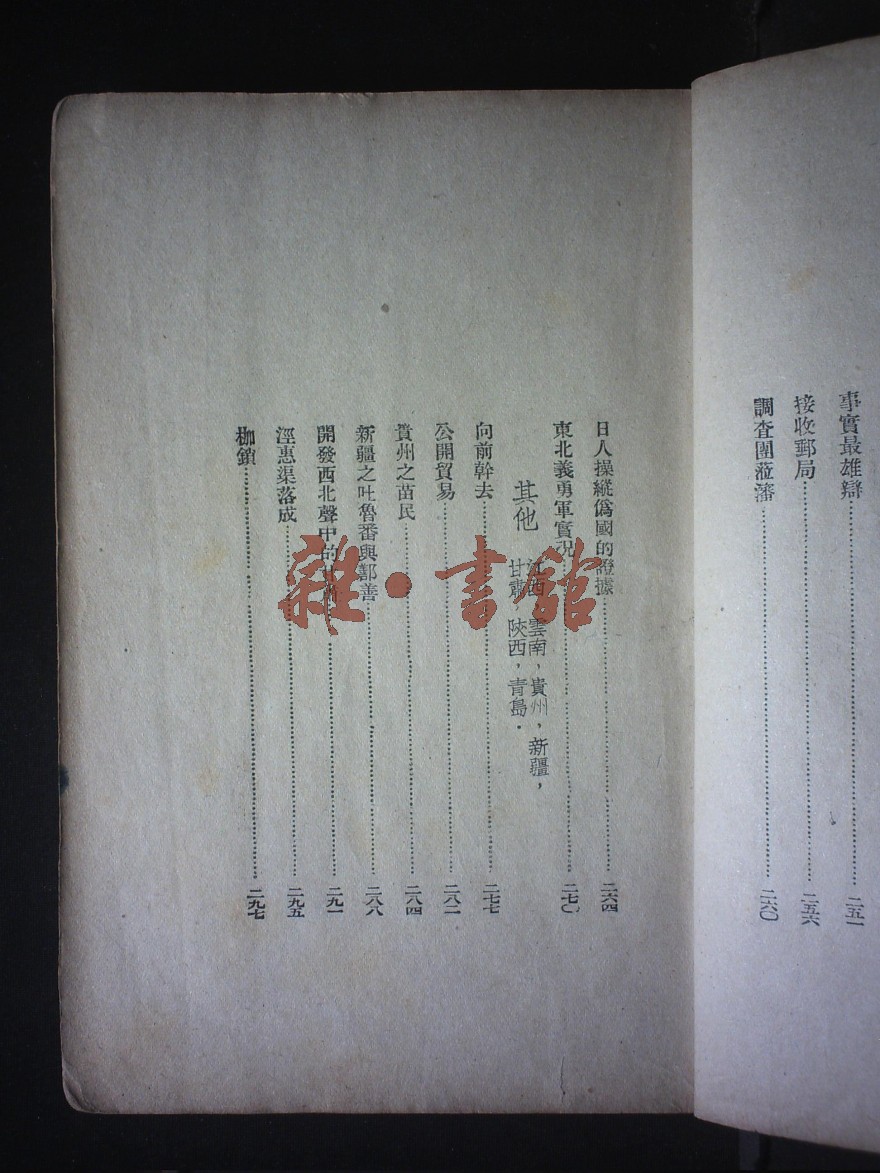 事實最雄辯⋯⋯二五一
接收郵局⋯⋯二五六
調查團蒞瀋⋯⋯二六〇
日人操縱僞國的證據⋯⋯二六四
東北義勇軍實況⋯⋯二七〇
其他
江西，雲南，貴州，新疆，
甘肅，陝西，青島．
向前幹去⋯⋯二七七
公開貿易⋯⋯二八二
貴州之苗民⋯⋯二八四
新疆之吐魯番與鄯善⋯⋯二八八
開發西北聲中的⋯⋯二九一
涇惠渠落成⋯⋯二九五
枷鎖⋯⋯二九七
雜·書館